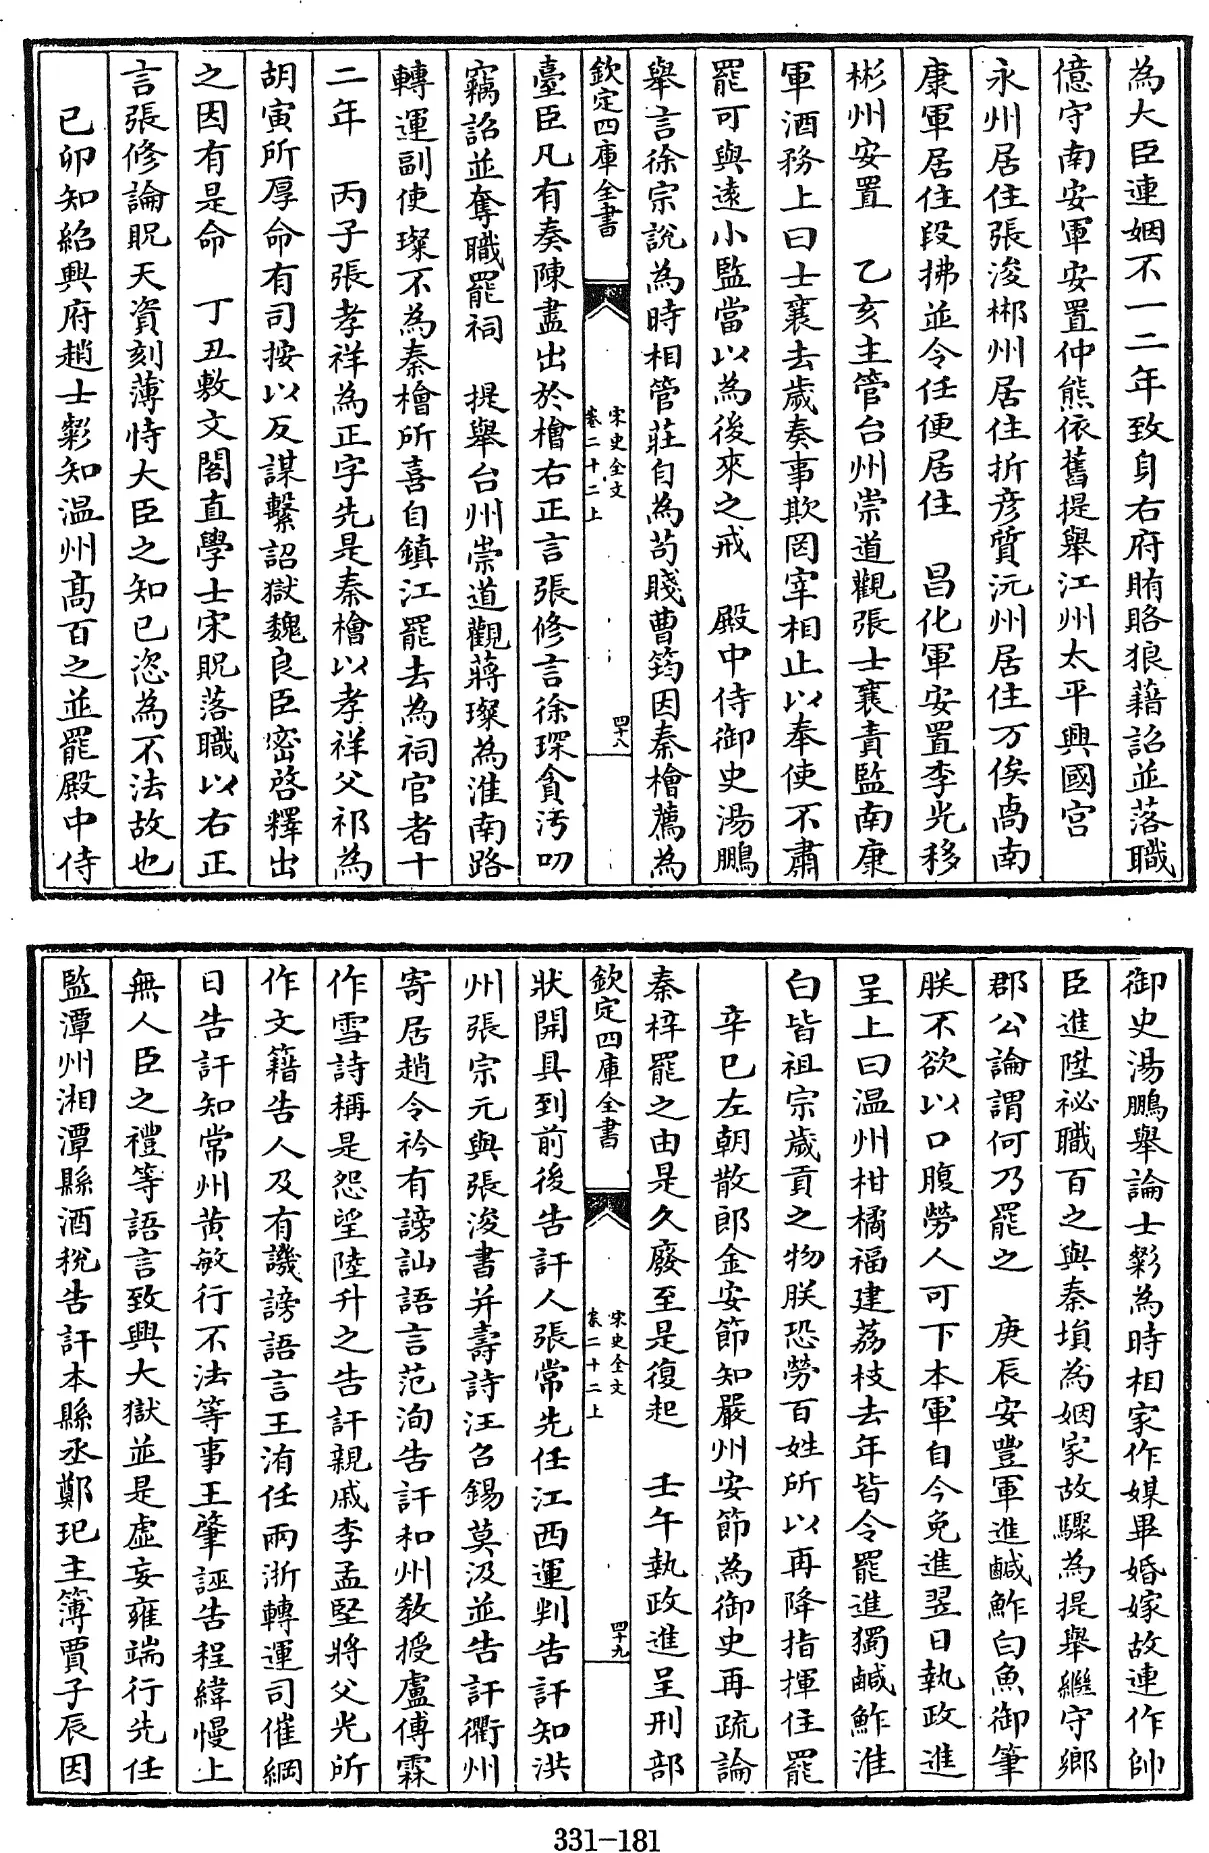 為大臣連姻不一二年致身右府賄賂狼藉詔並落職
億守南安軍安置仲熊依舊提舉江州太平興國宮
永州居住張浚郴州居住折彦質沅州居住万俟卨南
康軍居住段拂並令任便居住　昌化軍安置李光移
彬州安置　乙亥主管台州崇道觀張士襄責監南康
軍酒務上曰士襄去歲奏事欺罔宰相止以奉使不肅
罷可與遠小監當以為後來之戒　殿中侍御史湯鵬
舉言徐宗說為時相管莊自為茍賤曹筠因秦檜薦為
欽定四庫全書
宋史全文
卷二十二上
四十八
臺臣凡有奏陳盡出於檜右正言張修言徐琛貪汚叨
竊詔並奪職罷祠　提舉台州崇道觀蔣璨為淮南路
轉運副使璨不為秦檜所喜自鎮江罷去為祠官者十
二年　丙子張孝祥為正字先是秦檜以孝祥父祁為
胡寅所厚命有司按以反謀繫詔獄魏良臣密啓釋出
之因有是命　丁丑敷文閣直學士宋貺落職以右正
言張修論貺天資刻薄恃大臣之知已恣為不法故也
己卯知紹興府趙士㒟知温州髙百之並罷殿中侍
御史湯鵬舉論士㒟為時相家作媒畢婚嫁故連作帥
臣進陞祕職百之與秦塤為姻家故驟為提舉繼守鄉
郡公論謂何乃罷之　庚辰安豐軍進鹹鮓白魚御筆
朕不欲以口腹勞人可下本軍自今免進翌日執政進
呈上曰温州柑橘福建荔枝去年皆令罷進獨鹹鮓淮
白皆祖宗歲貢之物朕恐勞百姓所以再降指揮住罷
辛巳左朝散郎金安節知嚴州安節為御史再疏論
秦梓罷之由是久廢至是復起　壬午執政進呈刑部
欽定四庫全書
宋史全文
卷二十二上
四十九
狀開具到前後告訐人張常先任江西運判告訐知洪
州張宗元與張浚書并壽詩汪召錫莫汲並告訐衢州
寄居趙令衿有謗訕語言范洵告訐和州敎授盧傅霖
作雪詩稱是怨望陸升之告訐親戚李孟堅將父光所
作文籍告人及有譏謗語言王洧任兩浙轉運司催綱
日告訐知常州黄敏行不法等事王肇誣告程緯慢上
無人臣之禮等語言致興大獄並是虛妄雍端行先任
監潭州湘潭縣酒税告訐本縣丞鄭玘主簿賈子辰因
331-181